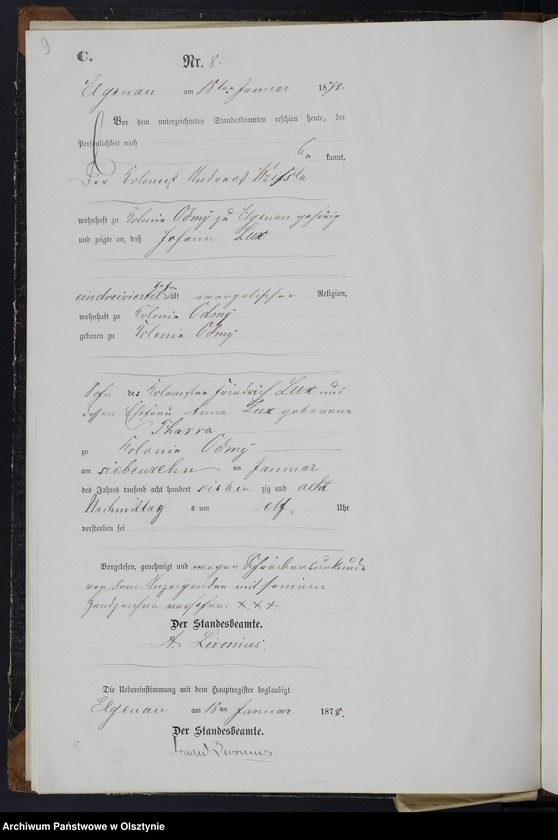 9
C.
Nr. 8.
Elgenau am 18ten Januar 1878.
Vor dem unterzeichneten Standesbeamten erschien heute, der
Persönlichkeit nach
kannt,
Der Kolonist Andreas
wohnhaft zu Kolonie Odmy zu Elgenau gehörig
und zeigte an, daß Johann Lux
eindreiviertel alt evangelischer Religion,
wohnhaft zu Kolonie Odmy
geboren zu Kolonie Odmy
Sohn des Kolonisten Friedrich Lux und
dessen Ehefrau Anna Lux geborene
Tharra
zu Kolonie Odmy
am siebenzehn ten Januar
des Jahres tausend acht hundert sieben zig und acht
Nachmittag s um elf Uhr
verstorben sei
Vorgelesen, genehmigt und wegen Schreibensunkunde
von dem Anzeigenden mit seinem
Handzeichen versehen. x x x
Der Standesbeamte.
A. Livonius.
Die Uebereinstimmung mit dem Hauptregister beglaubigt.
Elgenau am 18ten Januar 1878.
Der Standesbeamte.
Livonius
Archiwum Państwowe w Olsztynie